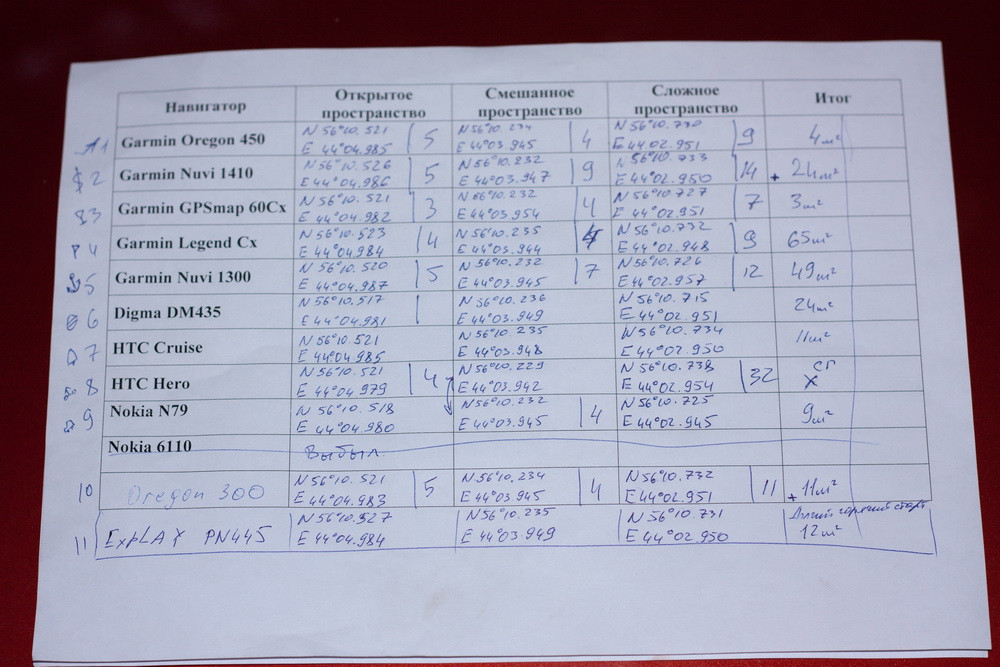 Навигатор
Открытое пространство
Смешанное пространство
Сложное пространство
Итог
Garmin Oregon 450
N 56°10.521
E 44°04.985
5
N 56°10.234
E 44°03.945
4
N 56°10.730
E 44 02.951
9
4m²
2
Garmin Nuvi 1410
N 56°10.526
E 44°04.986
5
N 56°10.232
E 44°03.947
9
N 56°10.733
E 44°02.950
14
+ 24m²
3
Garmin GPSmap 60Cx
N 56°10.521
E 44°04.982
3
N 56°10.232
E 44°03.954
4
N 56°10.727
E 44°02.951
7
3m²
4
Garmin Legend Cx
N 56°10.523
E 44°04.984
4
N 56°10.235
E 44°03.944
N 56°10.732
E 44°02.948
9
65m²
5
Garmin Nuvi 1300
N 56°10.520
E 44°04.987
5
N 56°10.232
E 44°03.945
7
N 56°10.726
E 44°02.957
12
49m²
6
Digma DM435
N 56°10.517
E 44°04.981
N 56°10.236
E 44°03.949
N 56°10.715
E 44°02.951
24m²
7
HTC Cruise
N 56°10.521
E 44°04.985
N 56°10.235
E 44°03.948
N 56°10.734
E 44°02.950
11m²
8
HTC Hero
N 56°10.521
E 44°04.979
4
N 56°10.229
E 44°03.942
N 56°10.738
E 44°02.954
32
9
Nokia N79
N 56°10.518
E 44°04.980
N 56°10.232
E 44°03.945
4
N 56°10.725
E 44°02.945
9m²
Nokia 6110
Выбыл
10
Oregon 300
N 56°10.521
E 44°04.983
5
N 56°10.234
E 44°03.945
4
N 56°10.732
E 44°02.951
11
+ 11m²
11
ExpLAY PN445
N 56°10.527
E 44°04.984
N 56°10.235
E 44°03.949
N 56°10.731
E 44°02.950
горячий старт
12m²